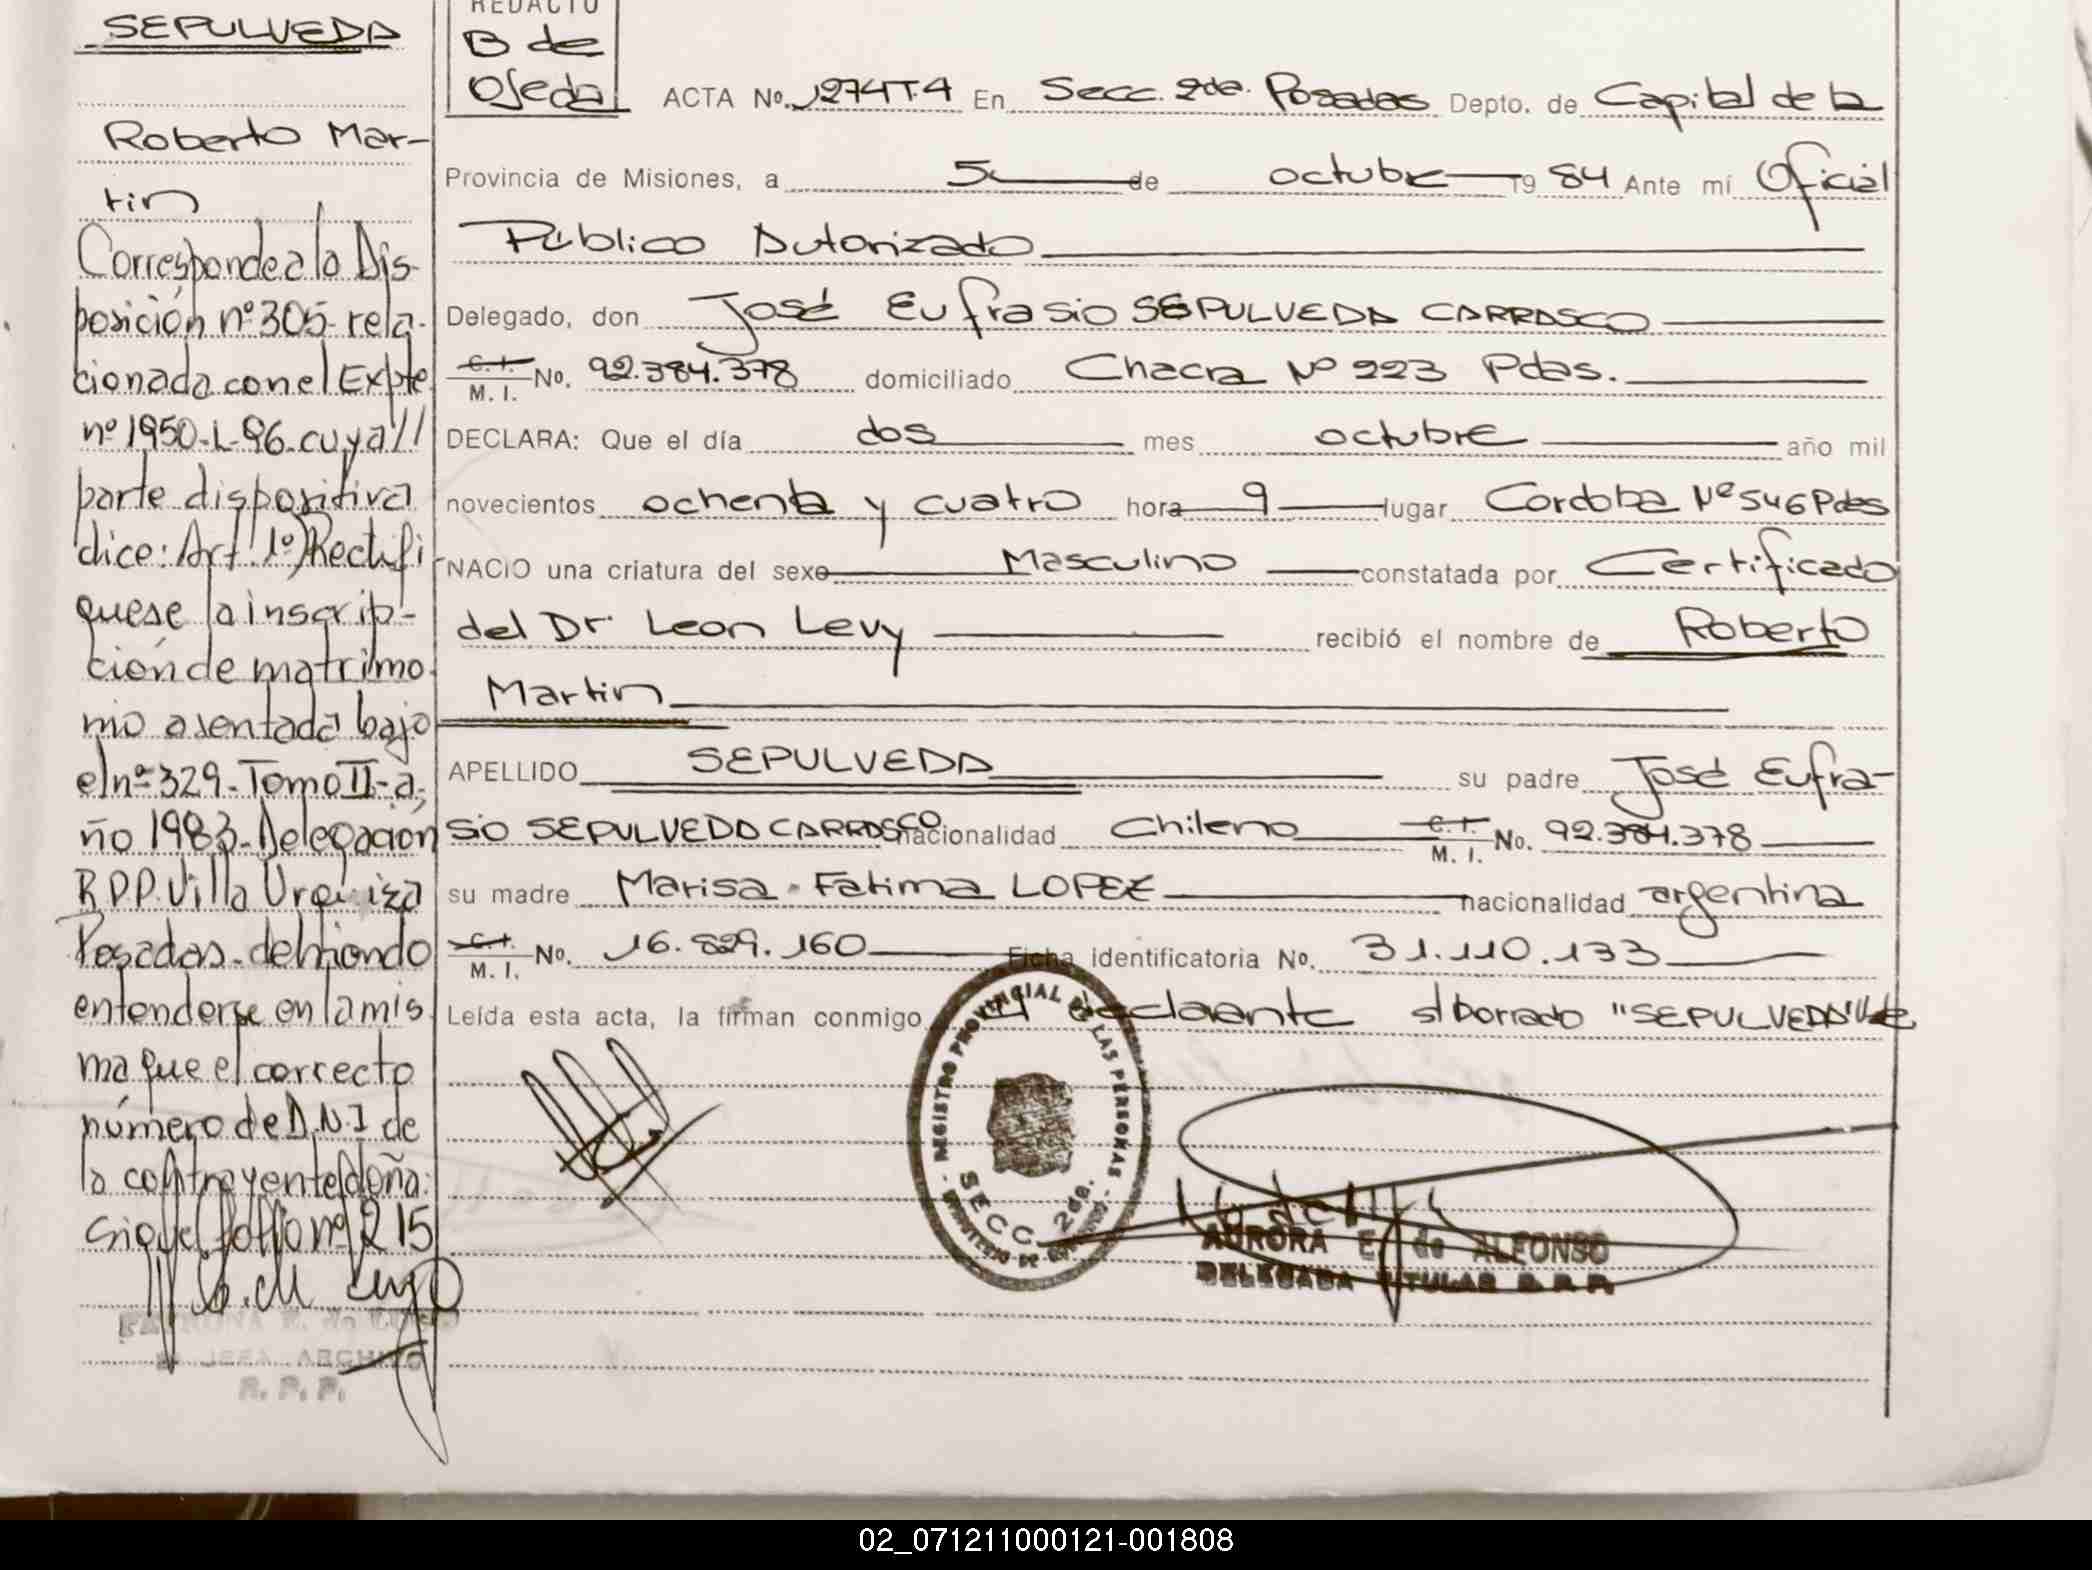 SEPULVEDA
Roberto Mar-
tin
Corresponde a la Dis-
posición nº 305- rela-
cionada con el Expte
nº 1950-L-96-cuya //
parte dispositiva
dice: Art. 1º) Rectifi
quese la inscrip-
ción de matrimo
nio asentada bajo
el nº 329-Tomo II-a,
ño 1983-Delegación
R.P.P. Villa Urquiza
Posadas-debiendo
entenderse en la mis
ma que el correcto
número de D.N.I de
la contrayente doña:
sigue folio nº 215
JEFA ARCHIVO
R. P. P.
REDACTO
B de
Ojeda
ACTA No. 1274T.4 En Secc. 2da. Posadas Depto. de Capital de la
Provincia de Misiones, a 5 de octubre 19 84 Ante mí Oficial
Público Autorizado
Delegado, don José Eufrasio SEPULVEDA CARRASCO
C.I. M. I. No. 92.384.378 domiciliado Chacra Nº 223 Pdas.
DECLARA: Que el día dos mes octubre año mil
novecientos ochenta y cuatro hora 9 lugar Cordoba Nº 546 Pdas
NACIO una criatura del sexo Masculino constatada por Certificado
del Dr. Leon Levy recibió el nombre de Roberto
Martin
APELLIDO SEPULVEDA su padre José Eufra-
sio SEPULVEDA CARRASCO nacionalidad Chileno C.I. M. I. No. 92.384.378
su madre Marisa Fatima LOPEZ nacionalidad argentina
C.I. M. I. No. 16.829.160 Ficha identificatoria No. 31.110.133
Leída esta acta, la firman conmigo el declarante s/borrado "SEPULVEDA" Vale
REGISTRO PROVINCIAL DE LAS PERSONAS
SECC. 2da.
AURORA E. de ALFONSO
DELEGADA TITULAR R.P.P.
02_071211000121-001808